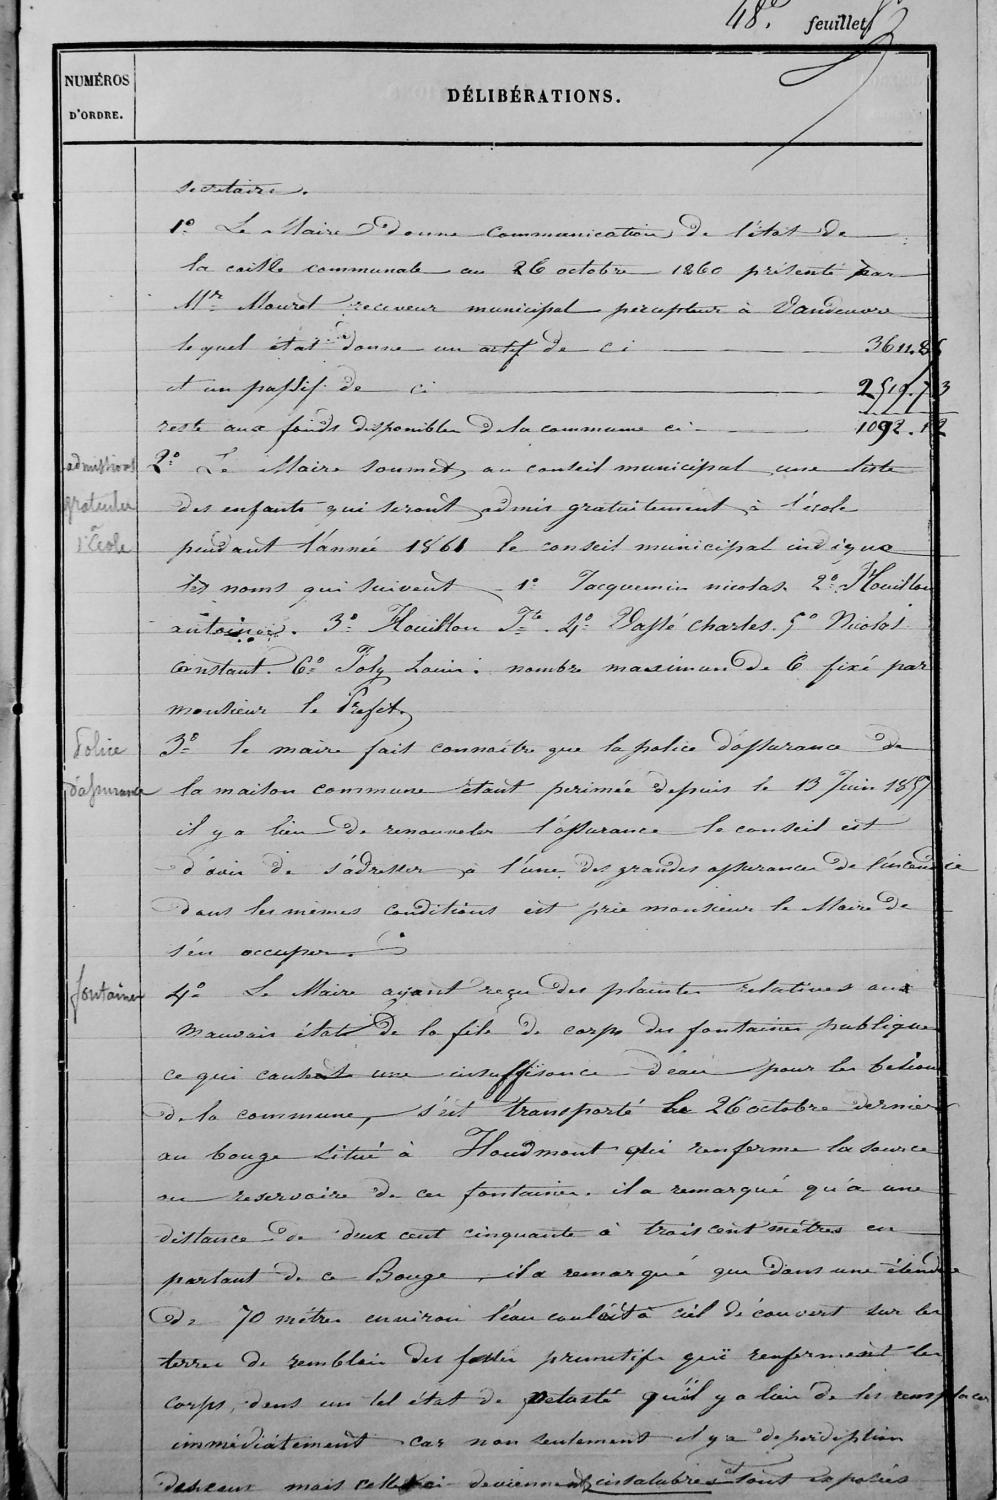 48.e feuillet
NUMÉROS
D'ORDRE.
DÉLIBÉRATIONS.
secretaire.
1° Le Maire donne communication de l'état de
la caisse communale au 26 octobre 1860 présenté par
Mr Mouret receveur municipal percepteur à Vandeuvre
lequel état donne un actif de ci 3611.85
et un passif de ci 2519.73
reste aux fonds disponibles de la commune ci 1092.12
admissions
gratuites
à l'école
2° Le Maire soumet au conseil municipal une liste
des enfants qui seront admis gratuitement à l'école
pendant l'année 1861 le conseil municipal indique
les noms qui suivent 1° Jacquemin nicolas 2° Houillon
antoine. 3° Houillon Jte. 4° Vassé charles. 5° Nicolas
constant. 6° Poly Louis. nombre maximum de 6 fixé par
monsieur le Prefet
Police
d'assurance
3° le maire fait connaitre que la police d'assurance de
la maison commune étant perimée depuis le 13 Juin 1857
il y a lieu de renouveler l'assurance le conseil est
d'avis de s'adresser à l'une des grandes assurances de l'incendie
dans les mêmes conditions et prie monsieur le Maire de
s'en occuper.
fontaines
4° Le Maire ayant reçu des plaintes relatives aux
mauvais état de la file de corps des fontaines publiques
ce qui causeat une insuffisance d'eau pour les besoins
de la commune, s'est transporté le 26 octobre dernier
au bouge situé à Houdmont qui renferme la source
ou reservoire de ces fontaines. il a remarqué qu'a une
distance de deux cent cinquante à trois cent mètres en
partant de ce Bouge, il a remarqué que dans une étendue
de 70 mètres environ l'eau coulait à ciel découvert sur les
terres de remblais des fossés primitifs qui renferment les
corps, dans un tel état de vetusté qu'il y a lieu de les remplacer
immédiatement car non seulement il y a deperdiption
des eaux mais celles ci deviennent insalubres et sont exposées